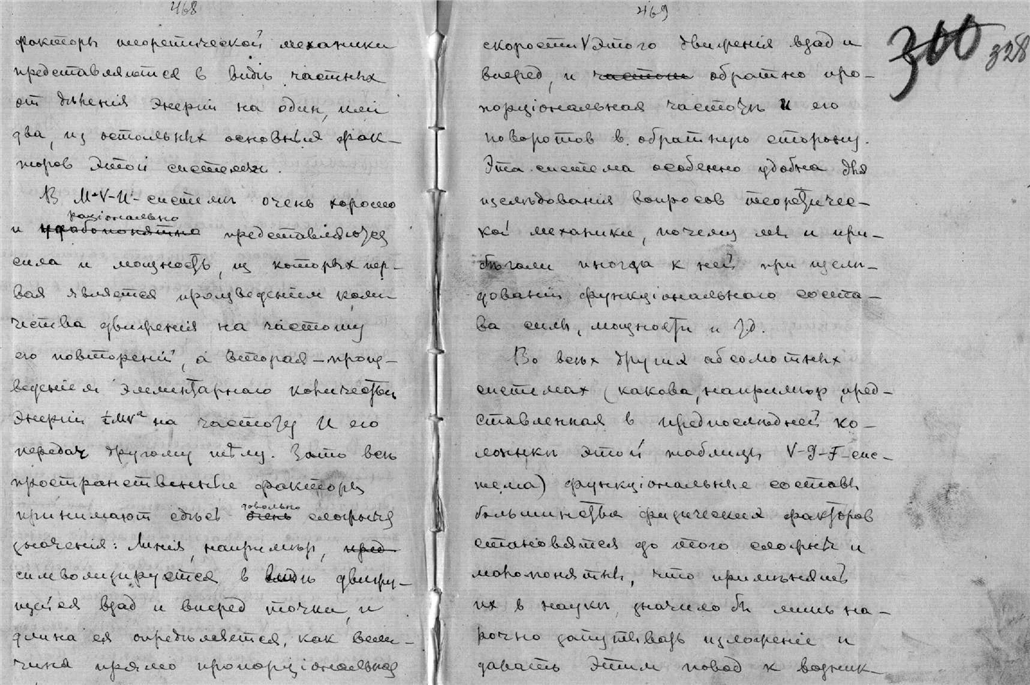 468
факторы теоретической механики
представляются в видѣ частных
от дѣленія энергіи на один, или
два, из остальных основныя фак-
торов этой системы.
В M-V-И-системѣ очень хорошо
раціонально
и представляются
сила и мощность, из которых пер-
вая является произведеніем коли-
чества движенія на частоту
его повтореній, а вторая-произ-
веденіем элементарнаго количества
энергіи ½MV² на частоту И его
передач другому тѣлу. Зато всѣ
пространственные факторы
довольно
принимают здѣсь очень сложныя
значенія: линія, например,
символизируется в видѣ движу-
щейся взад и вперед точки, и
длина ея опредѣляется, как вели-
чина прямо пропорціональная
469
300 328
скорости V этого движенія взад и
вперед, и частоты обратно про-
порціональная частоты И его
поворотов в обратную сторону.
Эта система особенно удобна для
изслѣдованія вопросов теоретичес-
кой механики, почему мы и при-
бѣгали иногда к ней при изслѣ-
дованіи функціональнаго соста-
ва силы, мощности и т.д.
Во всѣх другия абсолютных
системах (какова, например, пред-
ставленная в предпослѣдней ко-
лонкѣ этой таблицы V-J-F-сис-
тема) функціональные составы
большинства физическия факторов
становятся до того сложны и
малопонятны, что примѣнять
их в наукѣ, значило бы лишь на-
рочно запутывать изложеніе и
давать этим повод к возник-